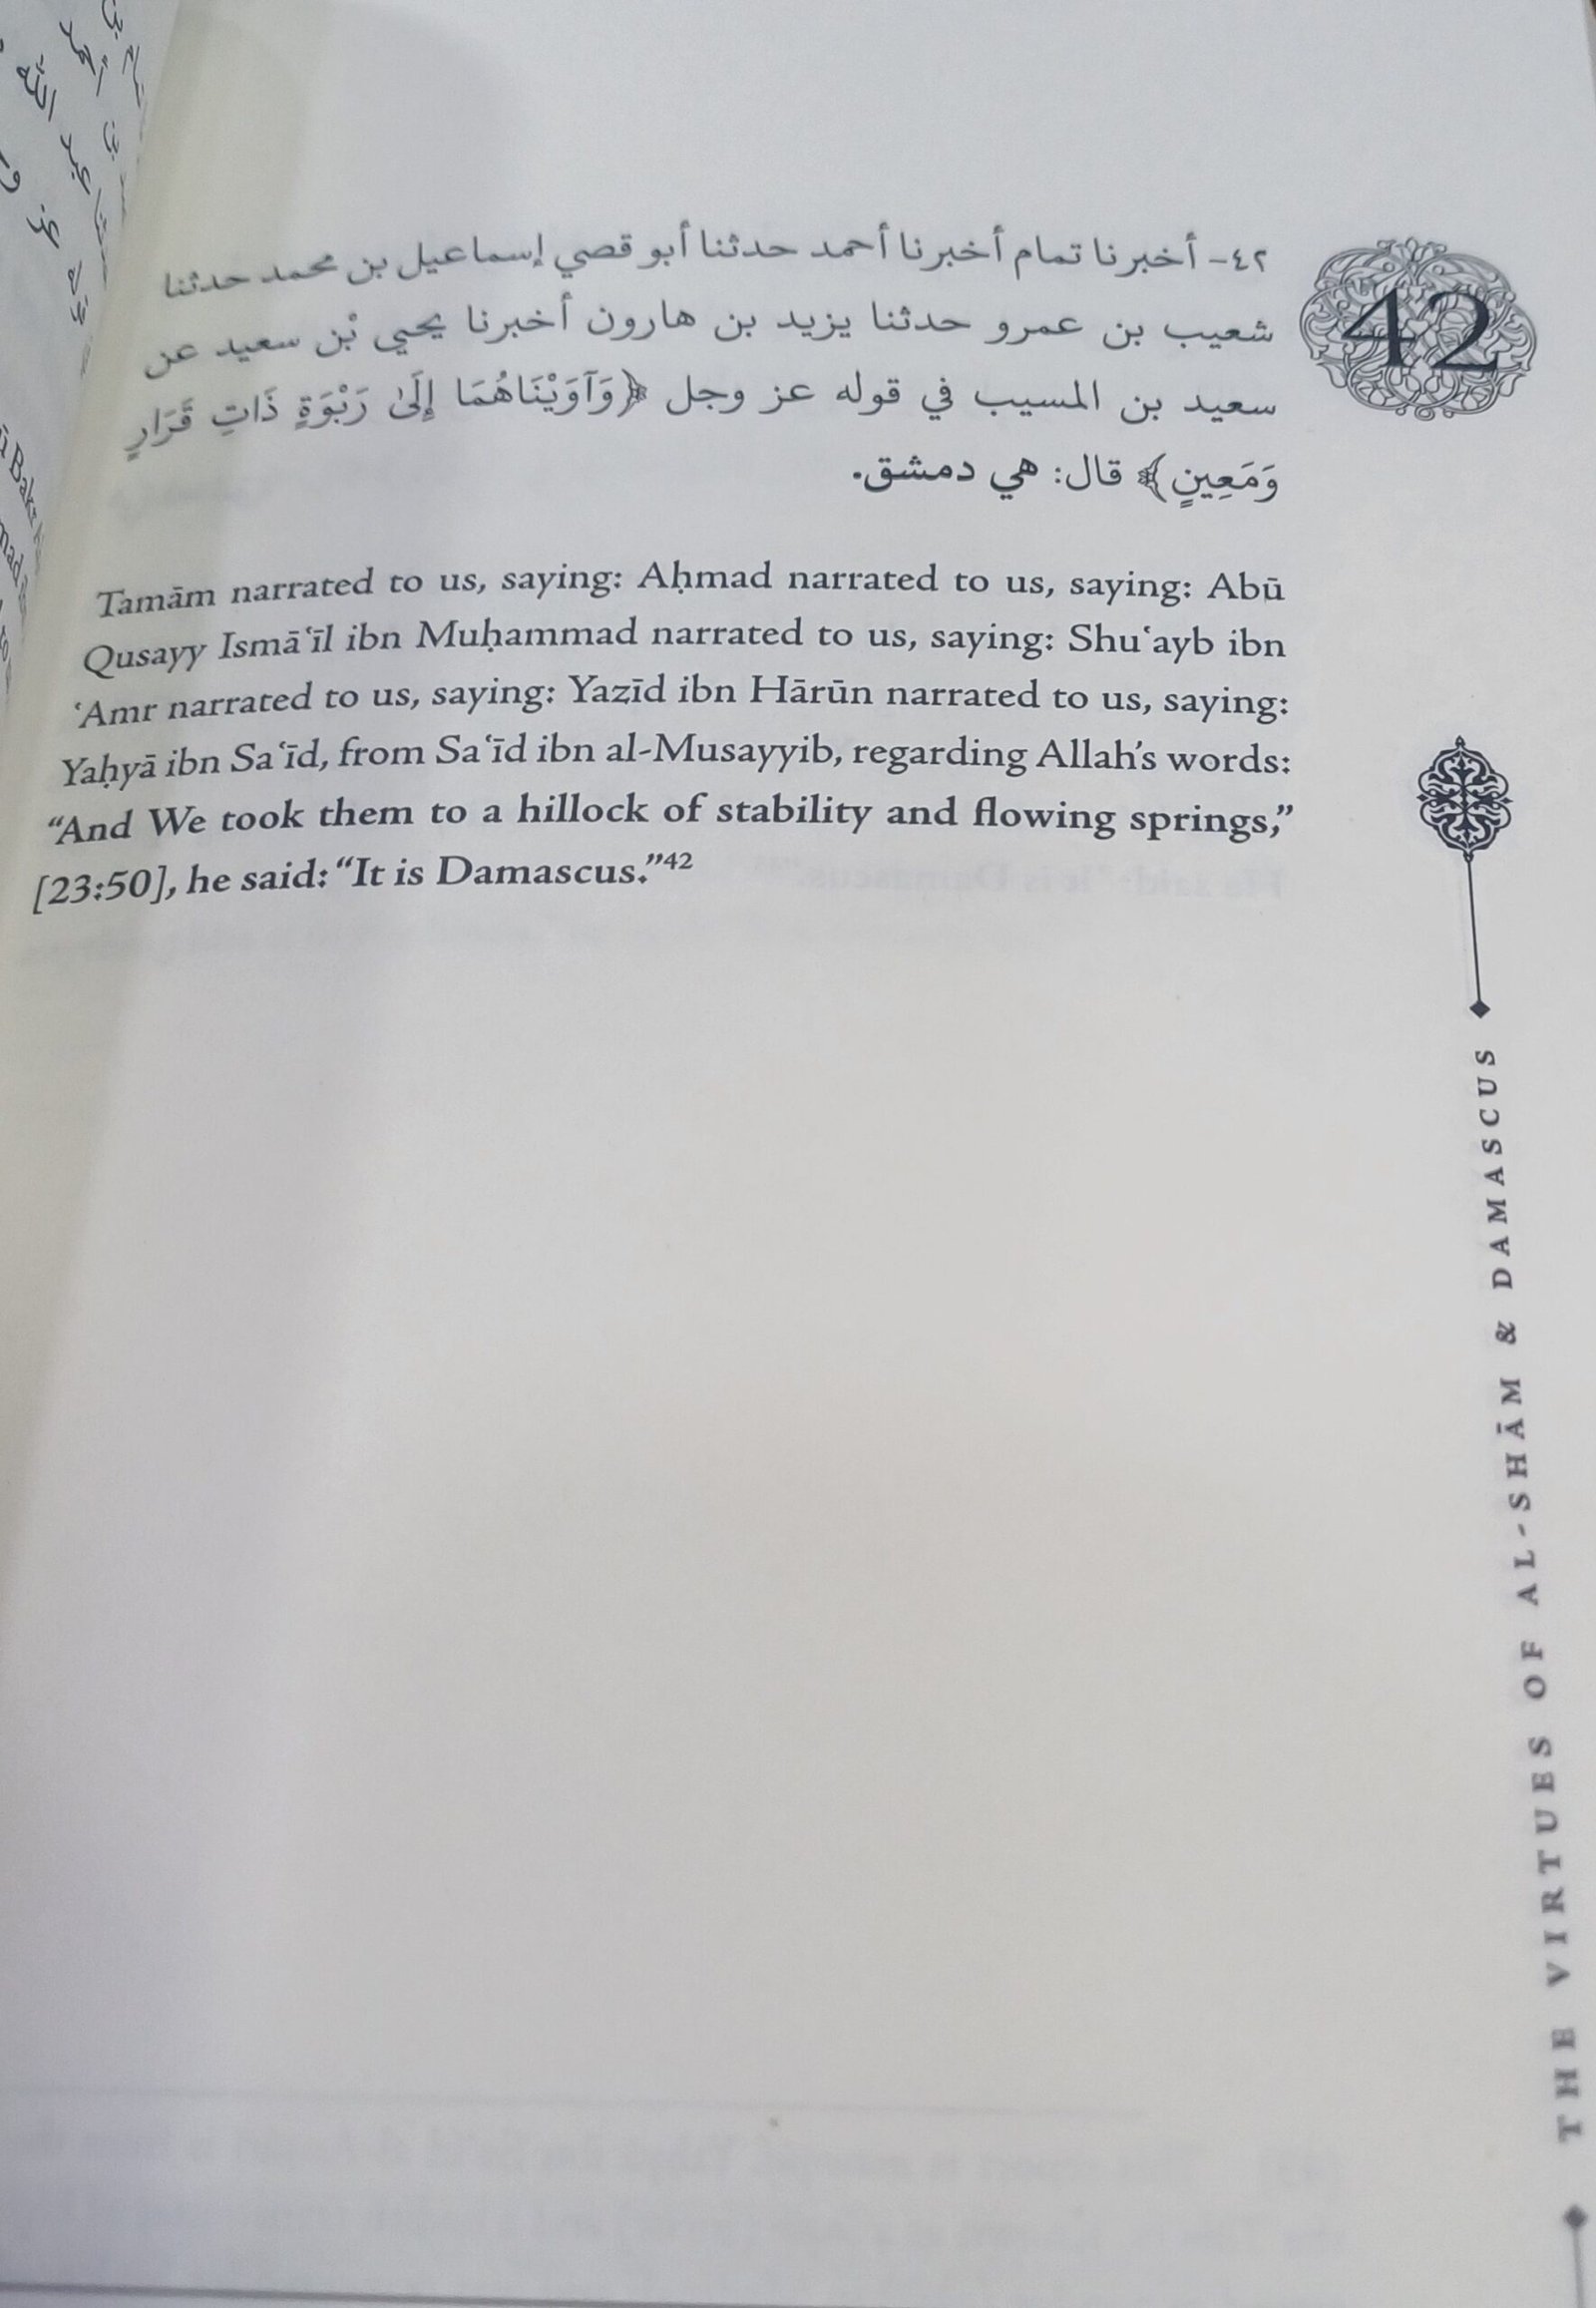 ٤٢- أخبرنا تمام أخبرنا أحمد حدثنا أبو قصي إسماعيل بن محمد حدثنا
شعيب بن عمرو حدثنا يزيد بن هارون أخبرنا يحيي بْن سعيد عن
سعيد بن المسيب في قوله عز وجل ﴿وَآوَيْنَاهُمَا إِلَىٰ رَبْوَةٍ ذَاتِ قَرَارٍ
وَمَعِينٍ﴾ قال: هي دمشق.
42
Tamām narrated to us, saying: Aḥmad narrated to us, saying: Abū
Qusayy Ismāʿīl ibn Muḥammad narrated to us, saying: Shuʿayb ibn
ʿAmr narrated to us, saying: Yazīd ibn Hārūn narrated to us, saying:
Yaḥyā ibn Saʿīd, from Saʿīd ibn al-Musayyib, regarding Allah’s words:
“And We took them to a hillock of stability and flowing springs,”
[23:50], he said: “It is Damascus.”42
THE VIRTUES OF AL-SHĀM & DAMASCUS